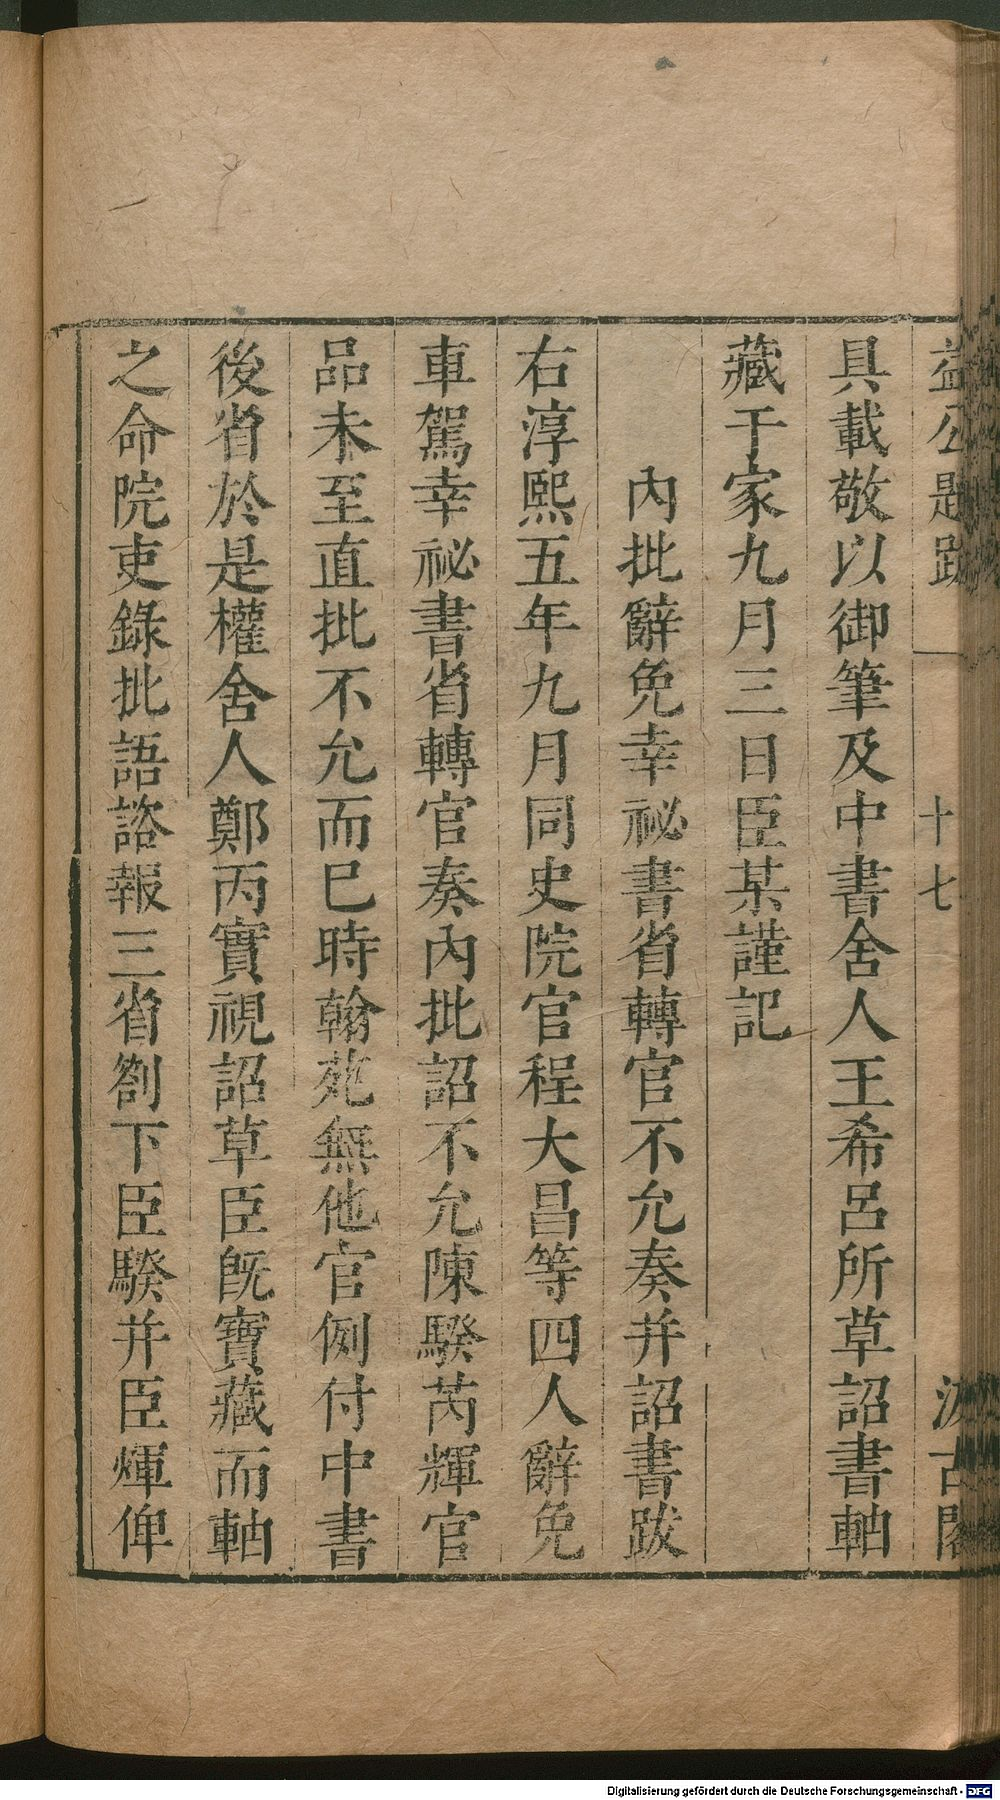 益公題跋 十七 汲古閣
具載敬以御筆及中書舍人王希呂所草詔書軸
藏于家九月三日臣某謹記
內批辭免幸祕書省轉官不允奏并詔書跋
右淳熙五年九月同史院官程大昌等四人辭免
車駕幸祕書省轉官奏內批詔不允陳騤芮輝官
品未至直批不允而巳時翰苑無他官例付中書
後省於是權舍人鄭丙實視詔草臣旣寶藏而軸
之命院吏錄批語諮報三省劄下臣騤并臣煇俾
Digitalisierung gefördert durch die Deutsche Forschungsgemeinschaft - DFG